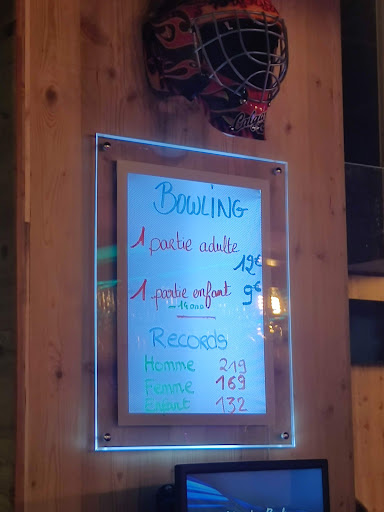 BOWLING
1 partie adulte
12€
1 partie enfant 9€
-14ans
RECORDS
Homme 219
Femme 169
Enfant 132